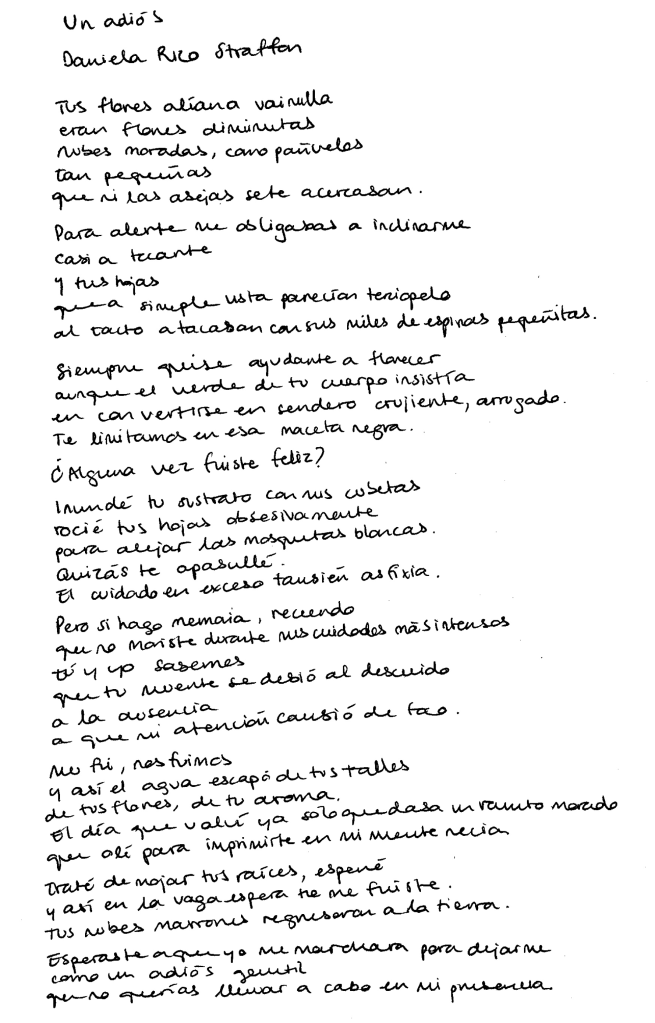 Un adiós
Daniela Rico Straffon
Tus flores olían a vainilla
eran flores diminutas
nubes moradas, como pañuelos
tan pequeñas
que ni las abejas se te acercaban.
Para olerte me obligabas a inclinarme
casi a tocarte
y tus hojas
que a simple vista parecían terciopelo
al tacto atacaban con sus miles de espinas pequeñitas.
Siempre quise ayudarte a florecer
aunque el verde de tu cuerpo insistía
en convertirse en sendero crujiente, arrugado.
Te limitamos en esa maceta negra.
¿Alguna vez fuiste feliz?
Inundé tu sustrato con mis cubetas
rocié tus hojas obsesivamente
para alejar las mosquitas blancas.
Quizás te apabullé.
El cuidado en exceso también asfixia.
Pero si hago memoria, recuerdo
que no moriste durante mis cuidados más intensos
tú y yo sabemos
que tu muerte se debió al descuido
a la ausencia
a que mi atención cambió de foco.
Me fui, nos fuimos
y así el agua escapó de tus tallos
de tus flores, de tu aroma.
El día que volví ya solo quedaba un ramito morado
que olí para imprimirte en mi mente necia
Traté de mojar tus raíces, esperé
y así en la vaga espera te me fuiste.
Tus nubes marrones regresaron a la tierra.
Esperaste a que yo me marchara para dejarme
como un adiós gentil
que no querías llevar a cabo en mi presencia.